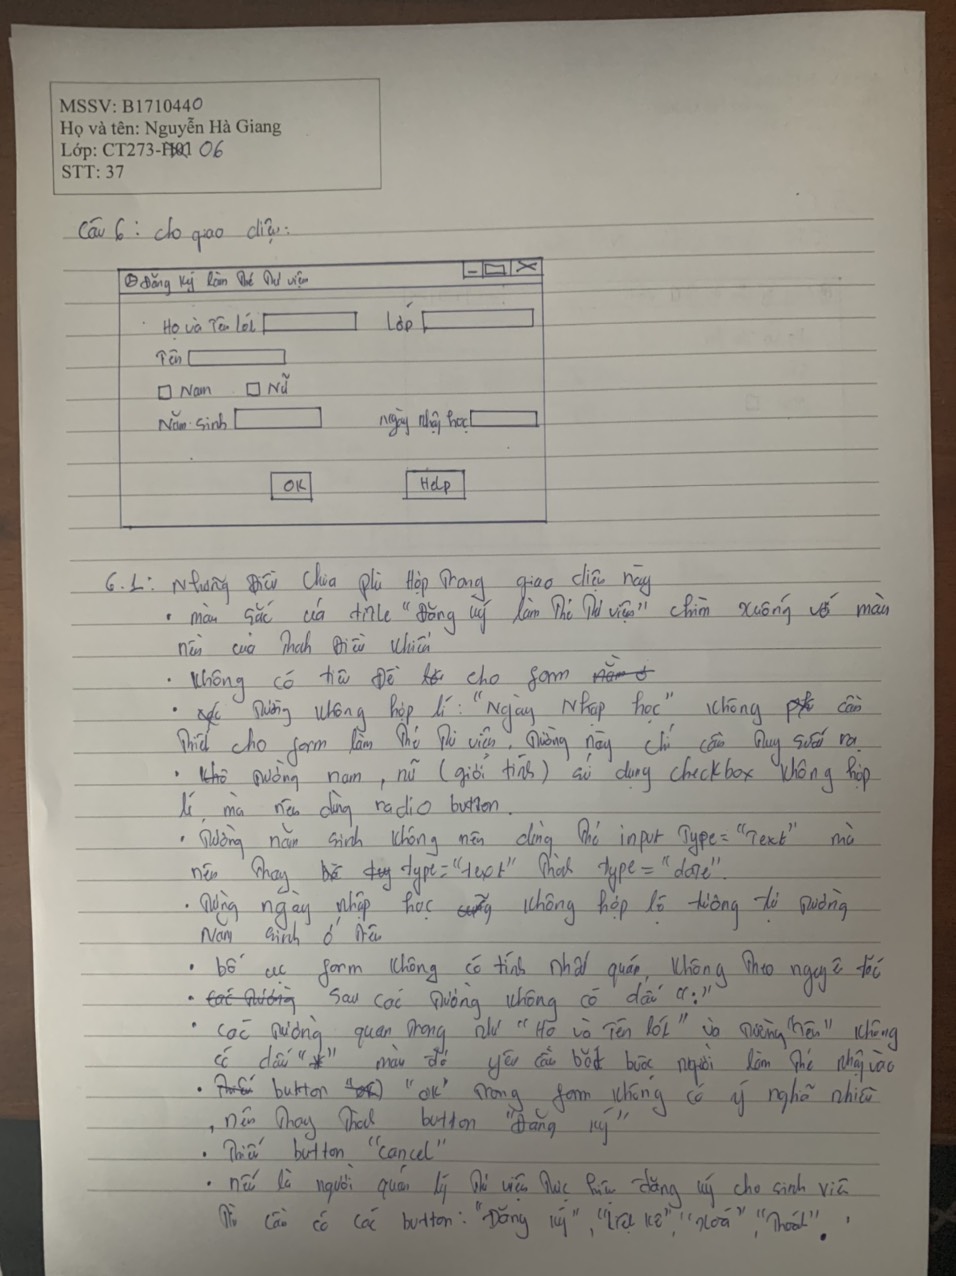 MSSV: B1710440
Họ và tên: Nguyễn Hà Giang
Lớp: CT273- 06
STT: 37
Câu 6: cho giao diện:
Đăng ký làm thẻ thư viện
Họ và Tên lót Lớp
Tên
Nam Nữ
Năm sinh ngày nhập học
OK Help
6.1: Những điều chưa phù hợp trong giao diện này
• màu sắc của title "Đăng ký làm thẻ thư viện" chìm xuống với màu
nền của thanh điều khiển
• Không có tiêu đề cho form
• trường không hợp lí: "Ngày Nhập học" không cần
thiết cho form làm thẻ thư viện, trường này chỉ cần ra
• trường nam, nữ (giới tính) sử dụng checkbox không hợp
lí, mà nên dùng radio button.
• Trường năm sinh không nên dùng thẻ input Type="Text" mà
nên thay type="text" thành type="date".
• trường ngày nhập học không hợp lý tương tự trường
Năm sinh ở trên
• bố cục form không có tính nhất quán, không theo nguyên tắc
• sau các trường không có dấu ":"
• các trường quan trọng như "Họ và Tên lót" và trường "Tên" không
có dấu "*" màu đỏ yêu cầu bắt buộc người làm thẻ nhập vào
• button "OK" trong form không có ý nghĩa nhiều
, nên thay thành button "Đăng ký"
• Thiếu button "cancel"
• nếu là người quản lý thư viện thực hiện đăng ký cho sinh viên
thì cần có các button: "Đăng ký", "Xoá", "Thoát".